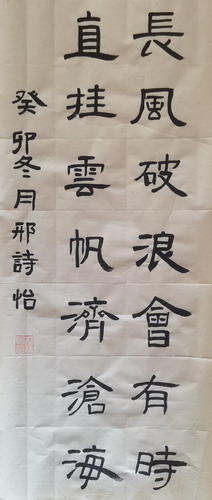 長風破浪會有時
直挂雲帆濟滄海
癸卯冬月邢詩怡